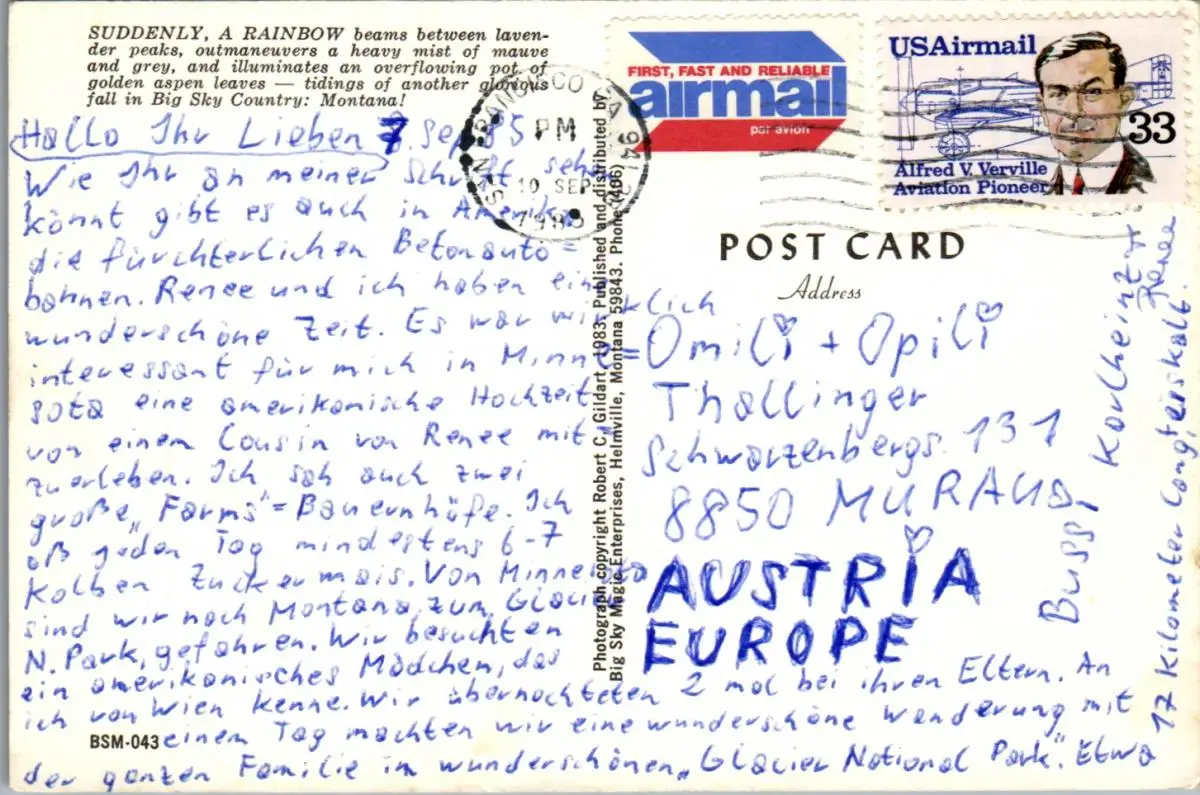 SUDDENLY, A RAINBOW beams between laven-
der peaks, outmaneuvers a heavy mist of mauve
and grey, and illuminates an overflowing pot of
golden aspen leaves — tidings of another glorious
fall in Big Sky Country: Montana!
Hallo Ihr Lieben 7. Sep 85
Wie Ihr an meiner Schrift sehen
könnt gibt es auch in Amerika
die fürchterlichen Betonauto=
bahnen. Renee und ich haben eine
wunderschöne Zeit. Es war wirklich
interessant für mich in Minne=
sota eine amerikanische Hochzeit
von einem Cousin von Renee mit
zuerleben. Ich sah auch zwei
große „Farms"= Bauernhöfe. Ich
aß jeden Tag mindestens 6-7
Kolben Zuckermais. Von Minnesota
sind wir nach Montana, zum Glacier
N. Park, gefahren. Wir besuchten
ein amerikanisches Mädchen, das
ich von Wien kenne. Wir übernachteten 2 mal bei ihren Eltern. An
BSM-043
einem Tag machten wir eine wunderschöne Wanderung mit
der ganzen Familie im wunderschönen „Glacier National Park". Etwa
17 Kilometer lang
Bussi Karlheinz +
Renee
Photograph copyright Robert C. Gildart, 1983. Published and distributed by
Big Sky Magic Enterprises, Helmville, Montana 59843. Phone (406)
FIRST, FAST AND RELIABLE
airmail
par avion
SAN FRANCISCO CA 941
PM
10 SEP
1985
USAirmail
33
Alfred V. Verville
Aviation Pioneer
POST CARD
Address
Omili + Opili
Thallinger
Schwarzenbergs. 131
8850 MURAU
AUSTRIA
EUROPE